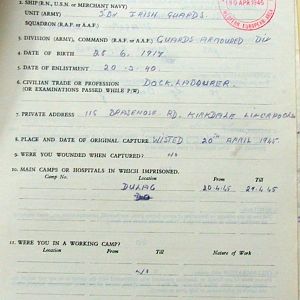 2. SHIP (R.N., U.S.N. or MERCHANT NAVY)
UNIT (ARMY) 3 BN IRISH GUARDS.
SQUADRON (R.A.F. or A.A.F.)
3. DIVISION (ARMY), COMMAND (R.A.F. or A.A.F.) GUARDS ARMOURED DIV
4. DATE OF BIRTH 28. 6. 1917.
5. DATE OF ENLISTMENT 20. 3. 40.
6. CIVILIAN TRADE OR PROFESSION DOCK. LABOURER.
(OR EXAMINATIONS PASSED WHILE P/W)
7. PRIVATE ADDRESS 115 BRASENOSE RD. KIRKDALE LIVERPOOL
8. PLACE AND DATE OF ORIGINAL CAPTURE WISTED 20TH APRIL 1945.
9. WERE YOU WOUNDED WHEN CAPTURED? NO
10. MAIN CAMPS OR HOSPITALS IN WHICH IMPRISONED.
Camp No. Location From Till
DULAG 20.4.45 29.4.45
11. WERE YOU IN A WORKING CAMP?
Location From Till Nature of Work
NO
APR 1945